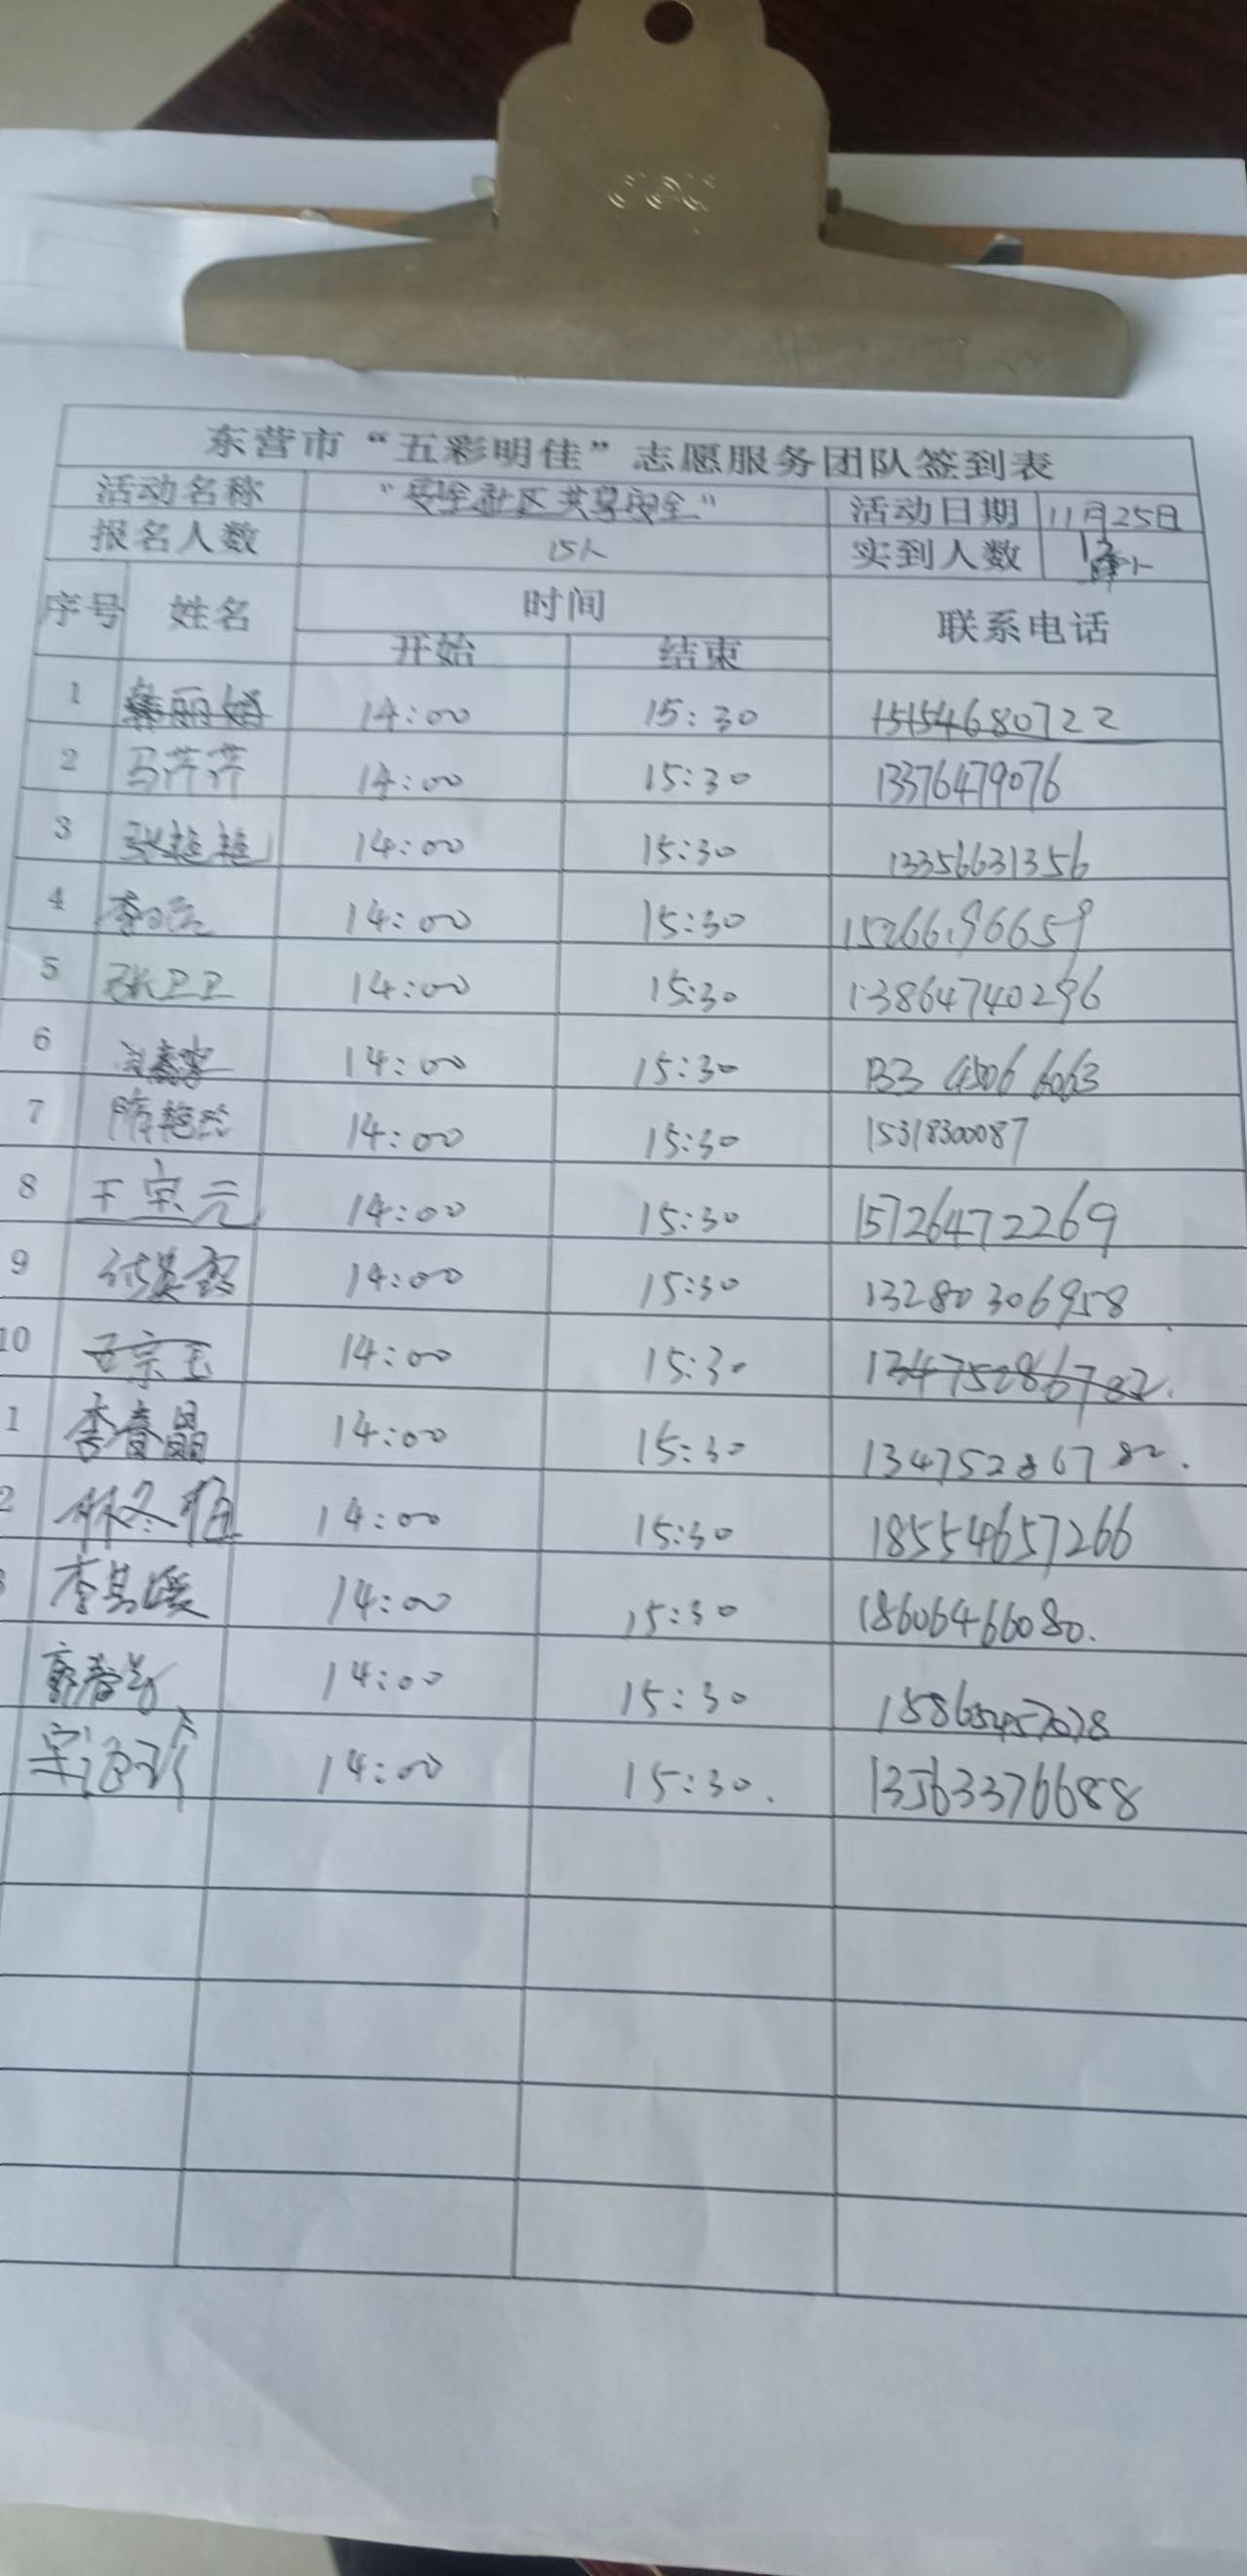 东营市“五彩明佳”志愿服务团队签到表
活动名称 “安全社区共享安全” 活动日期 11月25日
报名人数 15人 实到人数 13人
序号 姓名 时间 联系电话
开始 结束
1 14:00 15:30 15154680722
2 马芹芹 14:00 15:30 13376479076
3 张艳艳 14:00 15:30 13356631356
4 14:00 15:30 15266196659
5 张卫卫 14:00 15:30 13864740296
6 14:00 15:30 133 4506 6063
7 隋艳 14:00 15:30 15318300087
8 王宝元 14:00 15:30 15726472269
9 14:00 15:30 13280306958
10 王宗玉 14:00 15:30 13475286782.
1 李春晶 14:00 15:30 13475286782.
2 林冬梅 14:00 15:30 18554657266
李其媛 14:00 15:30 18606466080.
郭春 14:00 15:30
宋海珍 14:00 15:30. 13563376688